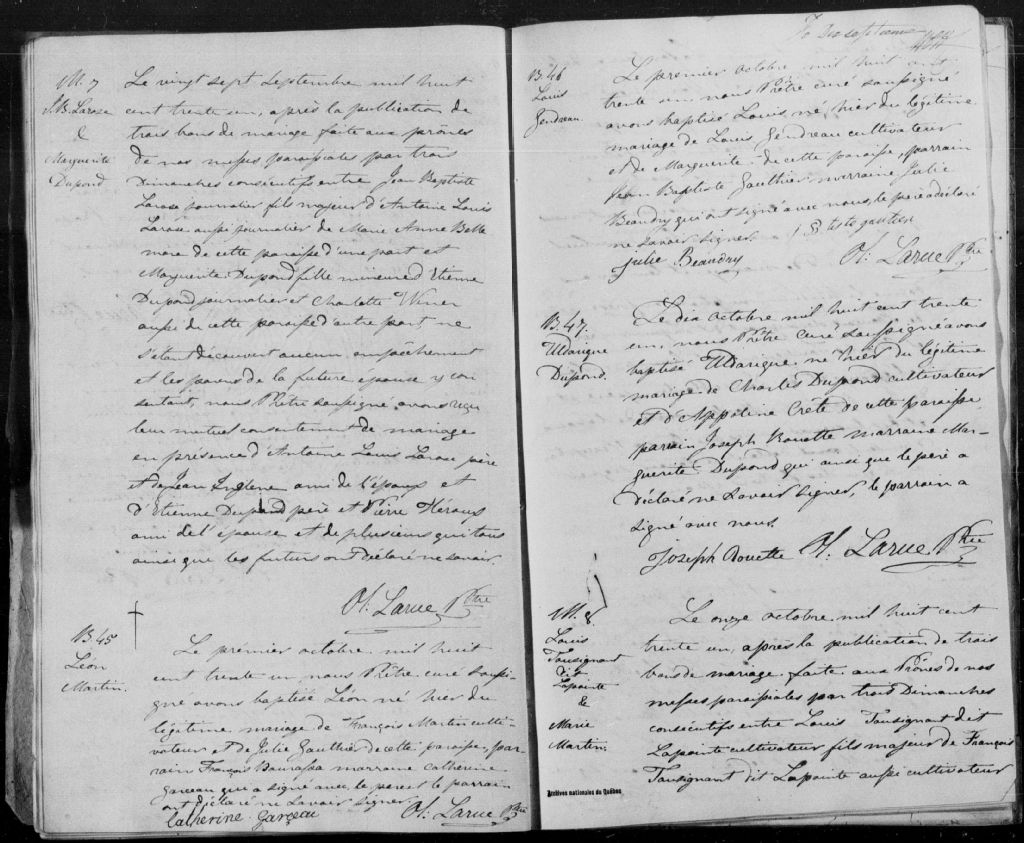 M. 7
J. B. Larose
&
Marguerite
Dupond
Le vingt sept Septembre mil huit
cent trente un, après la publication de
trois bans de mariage faite aux prônes
de nos messes paroissiales par trois
Dimanches consécutifs entre Jean Baptiste
Larose journalier fils majeur d'Antoine Louis
Larose aussi journalier de Marie Anne Belle
mare de cette paroisse d'une part et
Marguerite Dupond fille mineure d'Etienne
Dupond journalier et Charlotte
aussi de cette paroisse d'autre part, ne
s'étant découvert aucun empêchement
et les parens de la future épouse y con
sentant, nous Prêtre soussigné avons reçu
leur mutuel consentement de mariage
en présence d'Antoine Louis Larose père
et de Jean ami de l'époux et
d'Etienne Dupond père et Pierre Héroux
ami de l'épouse et de plusieurs qui tous
ainsi que les futurs ont déclaré ne savoir.
Ol. Larue Ptre
B. 45
Léon
Martin.
Le premier octobre mil huit
cent trente un nous Prêtre curé soussi-
gné avons baptisé Léon né hier du
légitime mariage de François Martin culti-
vateur et de Julie Gauthier de cette paroisse, par-
rain François Bournassa marraine Catherine
Garceau qui a signé avec le père et le parrain
ont déclaré ne savoir signer
Catherine Garceau Ol: Larue Ptre
7o dix septieme
B. 46
Louis
Gendreau.
Le premier octobre mil huit cent
trente un, nous Prêtre curé soussigné
avons baptisé Louis né, hier du légitime
mariage de Louis Gendreau cultivateur
et de Marguerite - de cette paroisse, parrain
Jean Baptiste Gauthier marraine Julie
Beaudry qui ont signé avec nous, le père a déclaré
ne savoir signer. J B tiste gautier
Julie Beaudry Ol: Larue Ptre
B. 47.
Uldarique
Dupond.
Le dix octobre mil huit cent trente
un, nous Prêtre curé soussigné avons
baptisé Uldarique né hier du légitime
mariage de Charles Dupond cultivateur
et d'Appoline Crete de cette paroisse
parrain Joseph Rouette marraine Mar-
guerite Dupond qui ainsi que le père a
déclaré ne savoir signer, le parrain a
signé avec nous.
Joseph Rouette Ol. Larue Ptre
M. 8
Louis
Tousignant
dit
Lapointe
&
Marie
Martin.
Le onze octobre mil huit cent
trente un, après la publication de trois
bans de mariage faite aux Prônes de nos
messes paroissiales par trois Dimanches
consécutifs entre Louis Tousignant dit
Lapointe cultivateur fils majeur de François
Tousignant dit Lapointe aussi cultivateur
Archives nationales du Québec